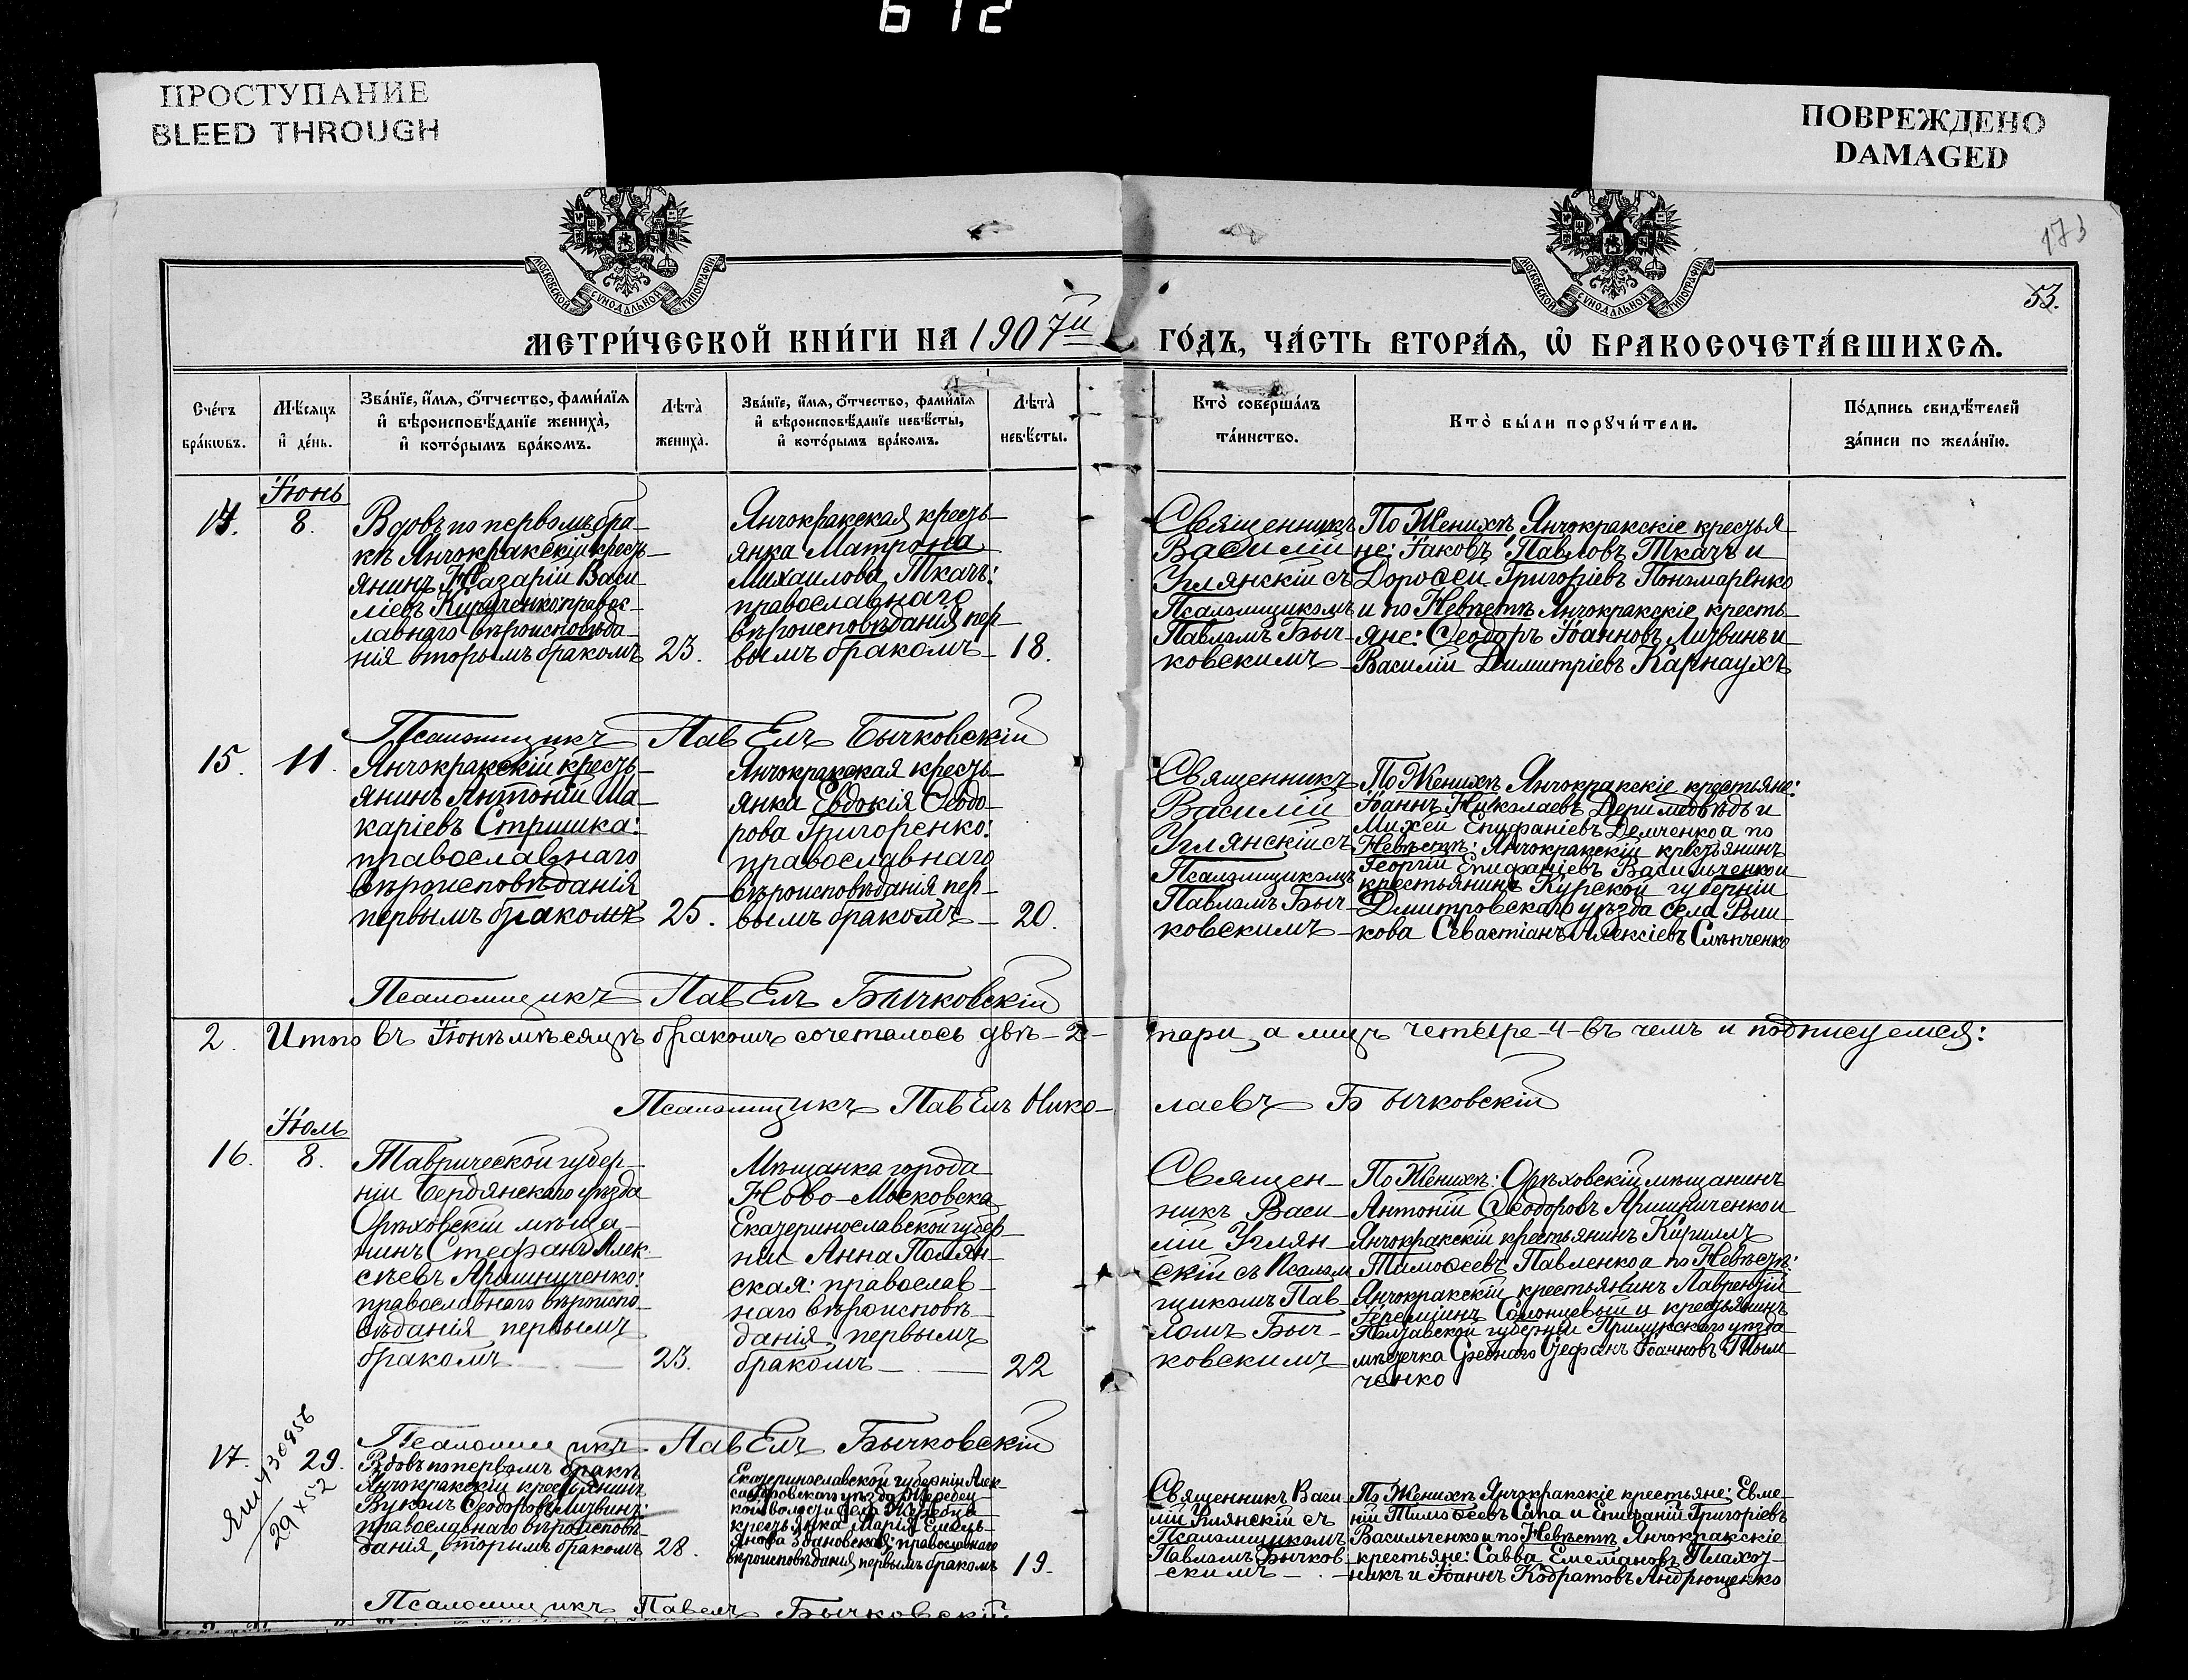 612
ПРОСТУПАНИЕ
BLEED THROUGH
ПОВРЕЖДЕНО
DAMAGED
173
53.
МОСКОВСКОЙ СУНОДАЛЬНОЙ ТИПОГРАФІИ
МОСКОВСКОЙ СУНОДАЛЬНОЙ ТИПОГРАФІИ
МЕТРИ́ЧЕСКОЙ КНИ́ГИ НА 1907й ГО́ДЪ, ЧА́СТЬ ВТОРА́Я, Ѡ БРАКОСОЧЕТА́ВШИХСЯ.
Сче́тъ
бра́кѡвъ.
Мѣ́сяцъ
и҆ де́нь.
Зва́нїе, и҆́мя, ѻ҆́тчество, фами́лїя
и҆ вѣроисповѣ́данїе жениха̀,
и҆ кото́рымъ бра́комъ.
Лѣта̀
жениха̀.
Зва́нїе, и҆́мя, ѻ҆́тчество, фами́лїя
и҆ вѣроисповѣ́данїе невѣ́сты,
и҆ кото́рымъ бра́комъ.
Лѣта̀
невѣ́сты.
Кто̀ соверша́лъ
та́инство.
Кто̀ бы́ли порꙋчи́тели.
По́дпись свидѣ́телей
за́писи по жела́нїю.
Іюнь
14.
8.
Вдовъ по первомъ бра-
кѣ Янчокракскій кресть-
янинъ Назарій Васи-
ліевъ Кириченко: правос-
лавнаго вѣроисповѣда-
нія вторымъ бракомъ
23.
Янчокракская кресть-
янка Матрона
Михаилова Ткачъ:
православнаго
вѣроисповѣданія пер-
вымъ бракомъ
18.
Священникъ
Василій
Углянскій съ
Псаломщикомъ
Павломъ Быч-
ковскимъ
По Женихѣ Янчокракскіе крестья
не: Іаковъ Павловъ Ткачъ и
Дороѳей Григоріевъ Пономаренко
и по Невѣстѣ Янчокракскіе кресть-
яне: Ѳеодоръ Іоанновъ Литвинъ и
Василій Димитріевъ Карнаухъ
Псаломщикъ Павелъ Бычковскій
15.
11.
Янчокракскій кресть-
янинъ Антоній Ма-
каріевъ Стришка:
православнаго
вѣроисповѣданія
первымъ бракомъ
25.
Янчокракская кресть-
янка Евдокія Ѳеодо-
рова Григоренко:
православнаго
вѣроисповѣданія пер-
вымъ бракомъ
20.
Священникъ
Василій
Углянскій съ
Псаломщикомъ
Павломъ Быч-
ковскимъ
По Женихѣ Янчокракскіе крестьяне:
Іоаннъ Николаевъ Деримедвѣдь и
Михей Епифаніевъ Демченко а по
Невѣстѣ: Янчокракскій крестьянинъ
Георгій Епифаніевъ Васильченко и
крестьянинъ Курской губерніи
Дмитровскаго уѣзда села
Севастіанъ Алексіевъ
Псаломщикъ Павелъ Бычковскій
2. Итого въ Іюнѣ мѣсяцѣ бракомъ сочеталось двѣ-2- пары, а лицъ четыре-4-въ чемъ и подписуемся:
Псаломщикъ Павелъ Нико- лаевъ Бычковскій
Іюль
16.
8.
Таврической губер-
ніи Бердянскаго уѣзда
Орѣховскій мѣща-
нинъ Стефанъ Алек-
сѣевъ Аришниченко:
православнаго вѣроиспо-
вѣданія первымъ
бракомъ
23.
Мѣщанка города
Ново-Московска
Екатеринославской губер-
ніи Анна Полян-
ская: православ-
наго вѣроисповѣ-
данія первымъ
бракомъ
22
Священ-
никъ Васи-
лій Углян-
скій съ Псалом
щикомъ Пав-
ломъ Быч-
ковскимъ
По Женихѣ: Орѣховскій мѣщанинъ
Антоній Ѳеодоровъ Аришниченко и
Янчокракскій крестьянинъ Кириллъ
Тимоѳеевъ Павленко а по Невѣстѣ:
Янчокракскій крестьянинъ Лаврентій
Іереміинъ Солонцевый и крестьянинъ
Полтавской губерніи Прилукскаго уѣзда
мѣстечка Сребнаго Стефанъ Іоанновъ Тым-
ченко
Псаломщикъ Павелъ Бычковскій
17.
29.
29 х 52
Вдовъ по первомъ бракѣ
Янчокракскій крестьянинъ
Вуколъ Ѳеодоровъ Литвинъ:
православнаго вѣроисповѣ-
данія, вторымъ бракомъ
28.
Екатеринославской губерніи Алек-
сандровскаго уѣзда
волости
крестьянка Марія Емель-
янова Здановская: православнаго
вѣроисповѣданія первымъ бракомъ
19.
Священникъ Васи-
лій Углянскій съ
Псаломщикомъ
Павломъ Бычков-
скимъ
По Женихѣ Янчокракскіе крестьяне: Евме-
ній Тимоѳеевъ Сапа и Епифаній Григоріевъ
Васильченко и по Невѣстѣ Янчокракскіе
крестьяне: Савва Емельановъ Плахот-
никъ и Іоаннъ Кодратовъ Андрющенко
Псаломщикъ Павелъ Бычковскій